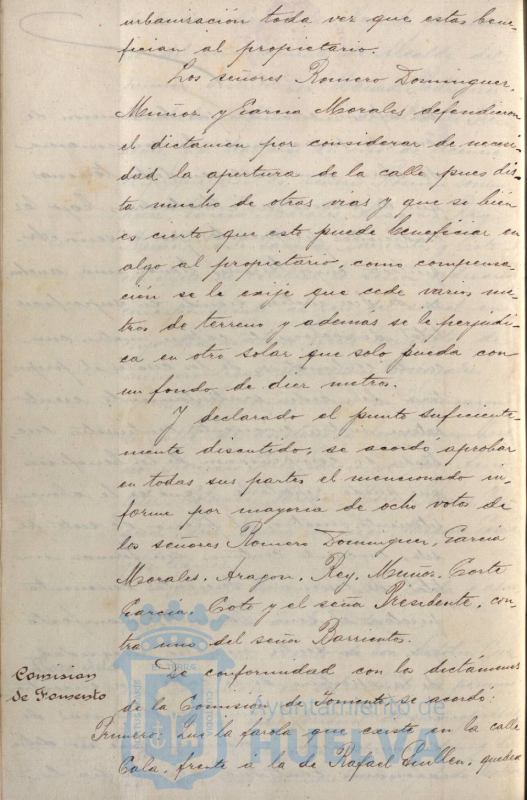 urbanización toda vez que estas bene-
fician al propietario.
Los señores Romero Dominguez,
Muñoz y Garcia Morales defendieron
el dictamen por considerar de necesi-
dad la apertura de la calle pues dis-
ta mucho de otras vias y que si bien
es cierto que esto puede beneficiar en
algo al propietario, como compensa-
ción se le exije que cede varios me-
tros de terreno y además se le perjudi-
ca en otro solar que solo pueda con
un fondo de diez metros.
Y declarado el punto suficiente-
mente discutido, se acordó aprobar
en todas sus partes el mencionado in-
forme por mayoria de ocho votos de
los señores Romero Dominguez, Garcia
Morales, Aragon, Rey, Muñoz, Corte
Garcia, Coto y el señor Presidente, con-
tra uno del señor Barrientos.
Comision
de Fomento
De conformidad con los dictámenes
de la Comisión de Fomento se acordó:
Primero: Que la farola que existe en la calle
Cala, frente a la de Rafael Guillen, quedara
Ayuntamiento de
HUELVA